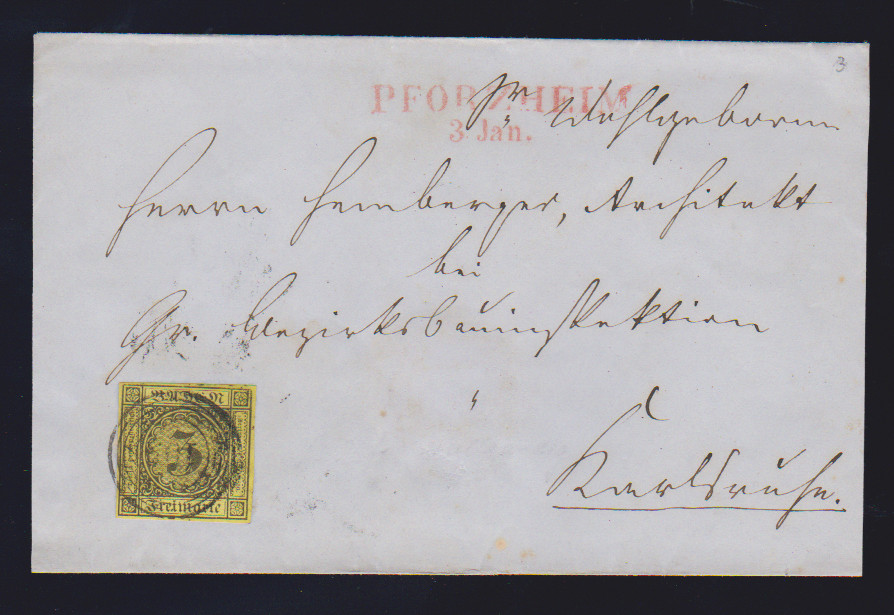 3
PFORZHEIM
3 Jan.
Sr Wohlgeboren
Herrn Hemberger, Architekt
bei
Gr. Bezirksbauinspektion
Karlsruhe.
BADEN
3
Freimarke